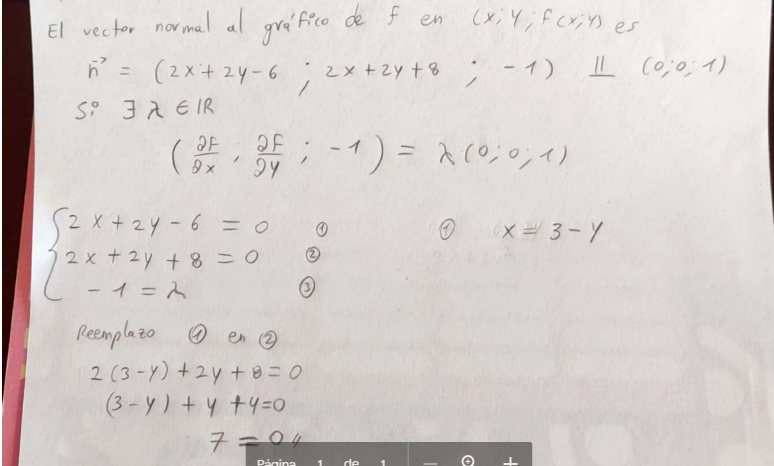 El vector normal al gráfico de f en (x; y; f(x;y) es
n⃗ = (2x + 2y - 6 ; 2x + 2y + 8 ; -1) || (0;0;1)
Si ∃ λ ∈ IR
(∂F/∂x ; ∂F/∂y ; -1) = λ(0; 0; 1)
2x + 2y - 6 = 0 ① ① x = 3 - y
2x + 2y + 8 = 0 ②
-1 = λ ③
Reemplazo ① en ②
2(3-y) + 2y + 8 = 0
(3-y) + y + 4=0
7 = 0
Página 1 de 1 — +